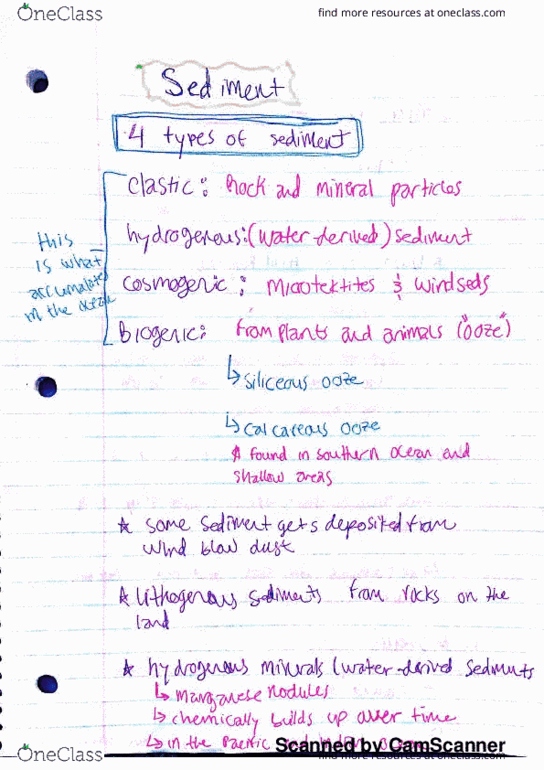 OneClass
find more resources at oneclass.com
Sediment
4 types of sediment
clastic: Rock and mineral particles
hydrogenous: (water-derived) sediment
cosmogenic: microtektites & windseds
biogenic: from plants and animals ("ooze")
this
is what
accumulates
in the ocean
↳ siliceous ooze
↳ calcareous ooze
found in southern ocean and
shallow areas
★ some sediment gets deposited from
wind blow dust
★ lithogenous sediments from rocks on the
land
★ hydrogenous minerals (water-derived sediments
↳ manganese nodules
↳ chemically builds up over time
↳ in the Pacific
Scanned by CamScanner
OneClass
find more resources at oneclass.com